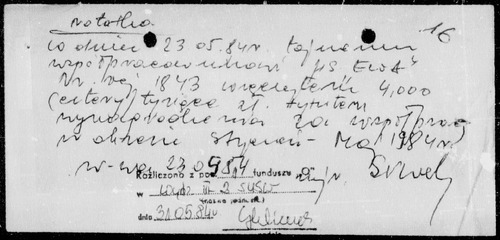 16
notatka
W dniu 23 05.84r. tajnemu
współpracownikowi "JS EWA"
Nr. rej 1843 wręczyłem 4,000
(cztery) tysiące zł. tytułem
wynagrodzenia za współpracę
w okresie Styczeń - Maj 1984r.
W-wa 23 05 84
Rozliczono z funduszu "O"
w Wydz. III-2 SUSW
(nazwa jednostki)
dnia 31.05.84r
podpis